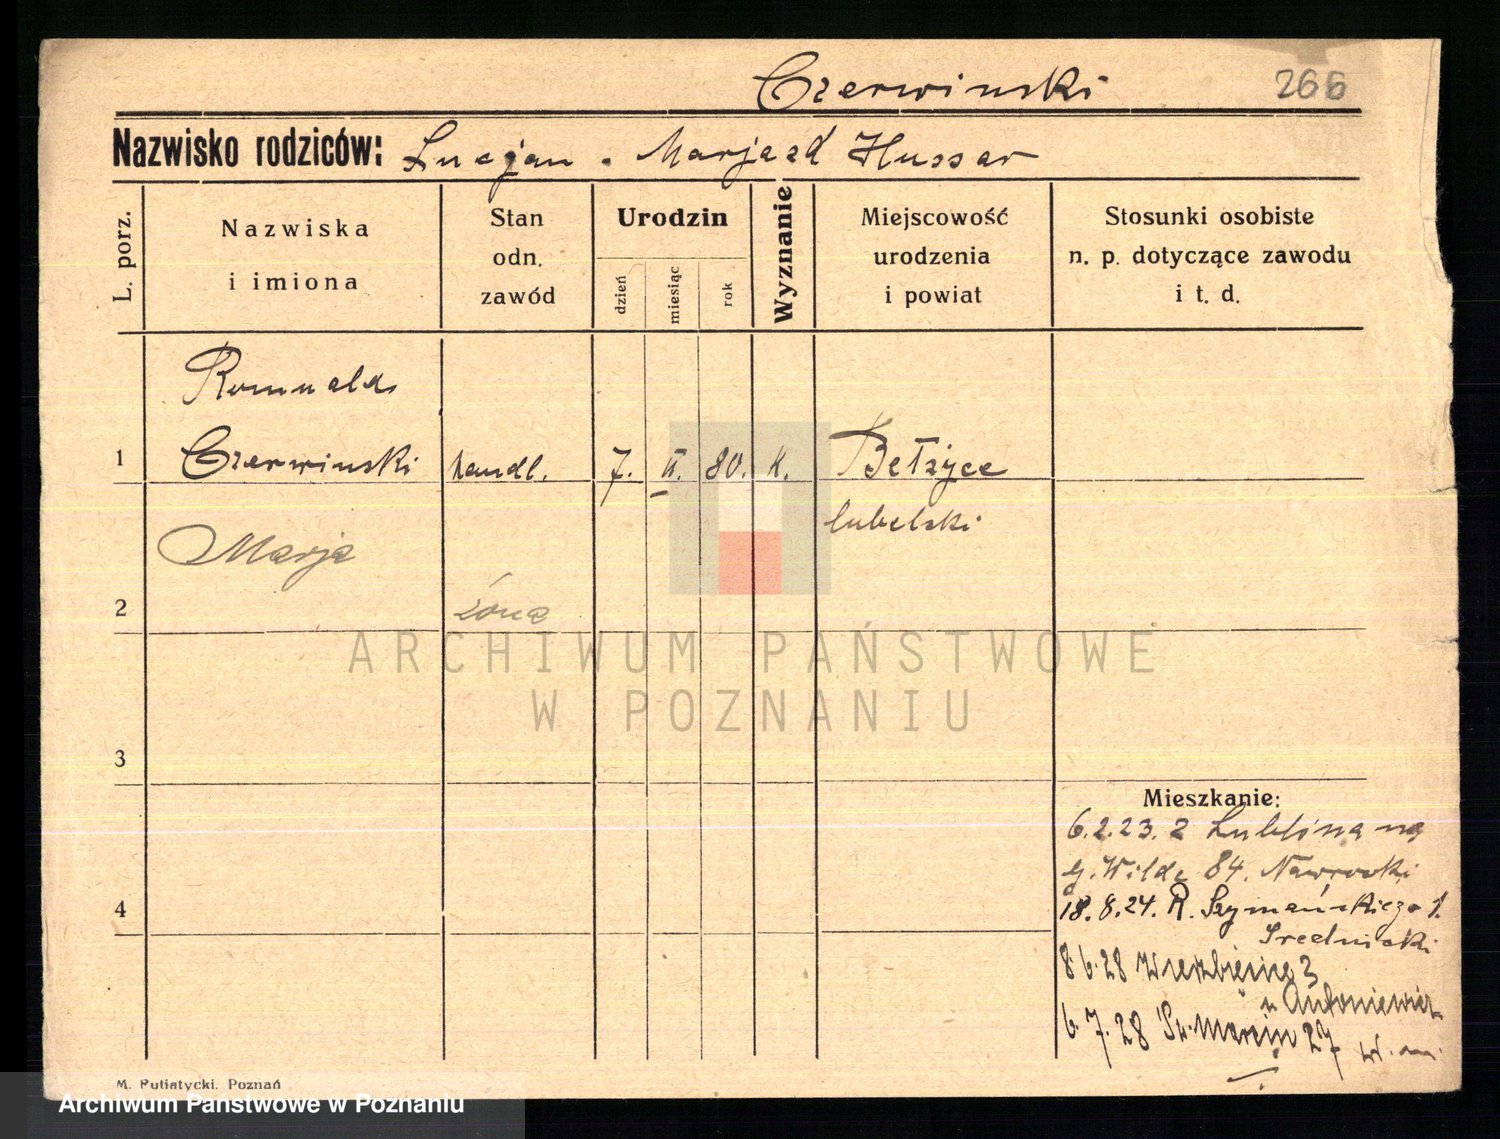 Czerwinski 266
Nazwisko rodziców: Lucjan . Marja zd Hussar
L. porz.
Nazwiska
i imiona
Stan
odn.
zawód
Urodzin
dzień
miesiąc
rok
Wyznanie
Miejscowość
urodzenia
i powiat
Stosunki osobiste
n. p. dotyczące zawodu
i t. d.
Romuald
1 Czerwinski handl. 7. II. 80. K. Bełżyce
lubelski
Marja
2 żona
ARCHIWUM PAŃSTWOWE
W POZNANIU
3
4
Mieszkanie:
6.2.23. z Lublina na
G. Wilde 84. Nawrocki
18.8.24. R. Szymańskiego 1.
Średnicki
8.6.28 Wierzbięcice 3
u Antoniewicz
6.7.28 Św. Marcin 27
M. Putiatycki. Poznań
Archiwum Państwowe w Poznaniu